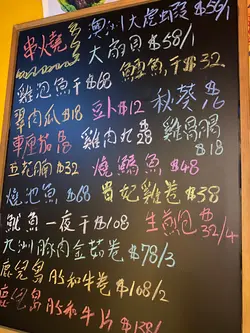 串燒 澳州大虎蝦 $56/1
大扇貝 $58/1
雞泡魚 $68 鱈魚干 $32
翠肉瓜 $18 豆卜 $12 秋葵 $16
車厘茄 $18 雞肉丸 28 雞
$18
五花腩 $32 燒鱔魚 $48
燒池魚 $68 貴妃雞卷 $38
魷魚一夜干 $108 生煎包 $32/4
九州豚肉金菇卷 $78/3
鹿兒島A5和牛卷 $108/2
鹿兒島A5和牛片 $138/1